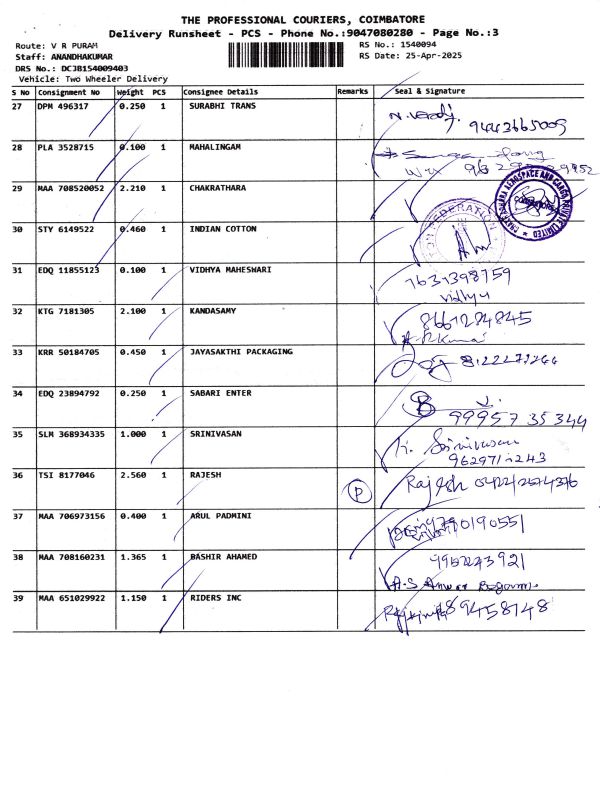 THE PROFESSIONAL COURIERS, COIMBATORE
Delivery Runsheet - PCS - Phone No.:9047080280 - Page No.:3
Route: V R PURAM
RS No.: 1540094
Staff: ANANDHAKUMAR
RS Date: 25-Apr-2025
DRS No.: DCJB154009403
Vehicle: Two Wheeler Delivery
S No Consignment No Weight PCS Consignee Details Remarks Seal & Signature
27 DPM 496317 0.250 1 SURABHI TRANS
9443665009
28 PLA 3528715 0.100 1 MAHALINGAM
29 MAA 708520052 2.210 1 CHAKRATHARA
30 STY 6149522 0.460 1 INDIAN COTTON
31 EDQ 11855123 0.100 1 VIDHYA MAHESWARI
7631398759
Vidhya
32 KTG 7181305 2.100 1 KANDASAMY
8667284845
33 KRR 50184705 0.450 1 JAYASAKTHI PACKAGING
34 EDQ 23894792 0.250 1 SABARI ENTER
99957 35344
35 SLM 368934335 1.000 1 SRINIVASAN
Srinivasan
36 TSI 8177046 2.560 1 RAJESH P Rajesh
37 MAA 706973156 0.400 1 ARUL PADMINI
38 MAA 708160231 1.365 1 BASHIR AHAMED
A.S Anwar Begam
39 MAA 651029922 1.150 1 RIDERS INC